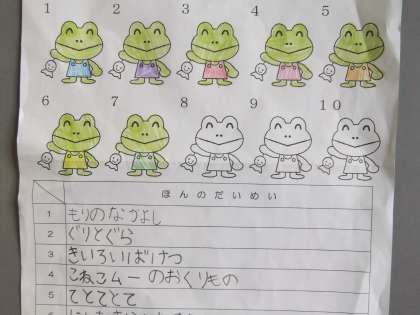 1 2 3 4 5
6 7 8 9 10
ほんのだいめい
1 もりのなかよし
2 ぐりとぐら
3 きいろいばけつ
4 こねこムーのおくりもの
5 てとてとて
6